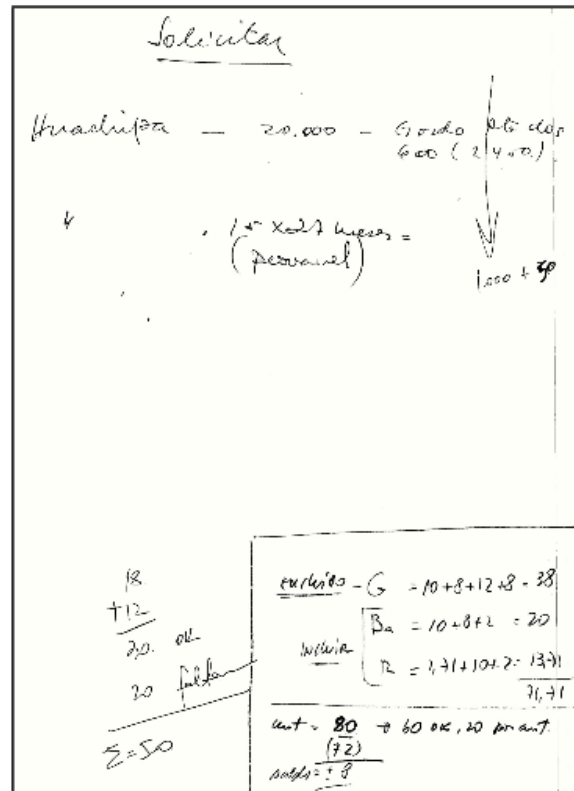 Solicitar
Huachipa — 20.000 — Gordo
600 (2400)
. 15 x 27 meses =
(provavel)
1.000 +
18
+12
20. ok
20 faltam
Σ=50
excluído - G = 10+8+12+8 = 38
Ba = 10+8+2 = 20
incluir
R = 1,71+10+2 = 13,71
71,71
ant = 80 → 60 ok, 20 por ant.
(72)
saldo = ± 8